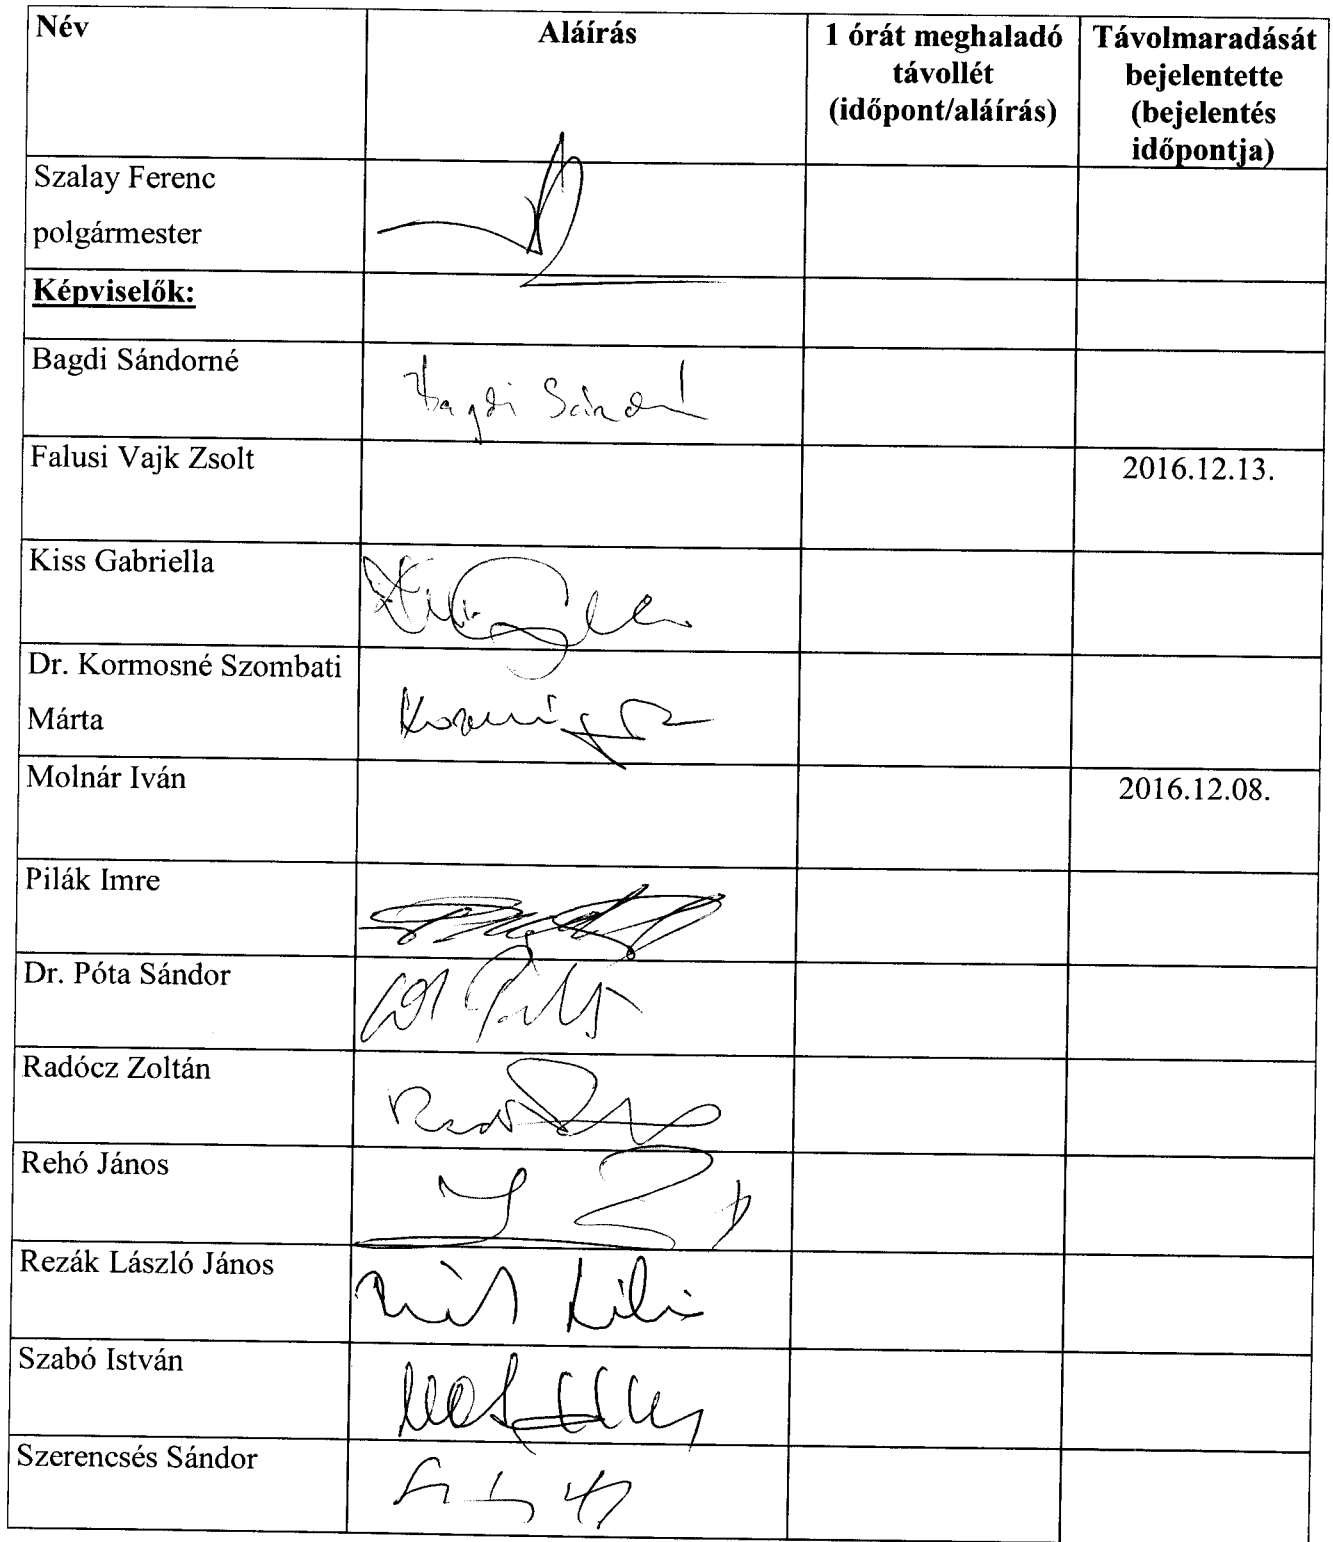 Név
Aláírás
1 órát meghaladó
távollét
(időpont/aláírás)
Távolmaradását
bejelentette
(bejelentés
időpontja)
Szalay Ferenc
polgármester
Képviselők:
Bagdi Sándorné
Bagdi Sándorné
Falusi Vajk Zsolt
2016.12.13.
Kiss Gabriella
Dr. Kormosné Szombati
Márta
Molnár Iván
2016.12.08.
Pilák Imre
Dr. Póta Sándor
Radócz Zoltán
Rehó János
Rezák László János
Szabó István
Szerencsés Sándor